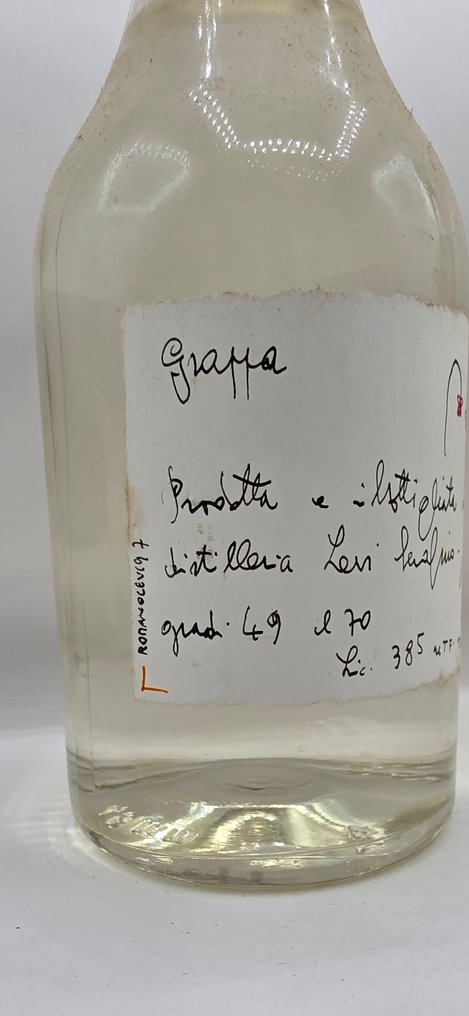 Grappa
Prodotta e imbottigliata
distilleria Levi Serafino
gradi 49 cl 70
Lic. 385 UTF
ROMANOLEVI97